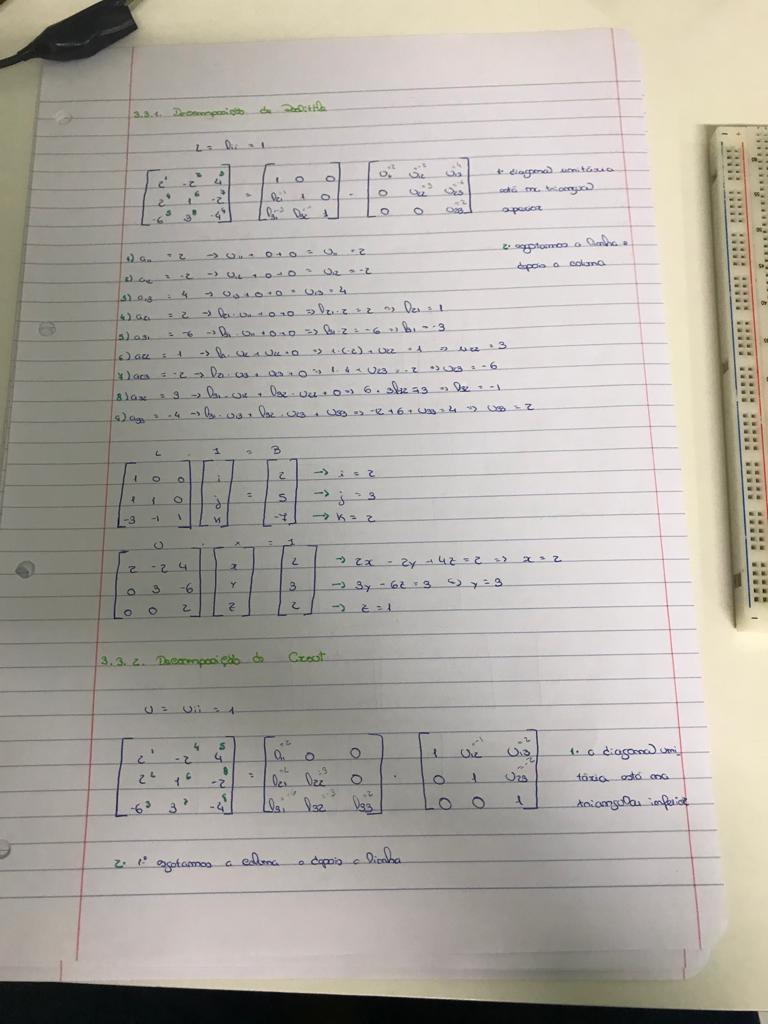 3.3.1. Decomposição de Doolittle
L = lii = 1
[2¹ -2² 4³; 2⁴ 1⁶ -2⁷; -6⁵ 3⁸ -4⁹] = [1 0 0; l21 1 0; l31 l32 1] · [u11 u12 u13; 0 u22 u23; 0 0 u33]
1. diagonal unitária
está na triangual
superior
2. esgotamos a linha e
depois a coluna
1) a11 = 2 → u11 + 0 + 0 = u11 = 2
2) a12 = -2 → u12 + 0 + 0 = u12 = -2
3) a13 = 4 → u13 + 0 + 0 = u13 = 4
4) a21 = 2 → l21 · u11 + 0 + 0 ⇒ l21 · 2 = 2 ⇒ l21 = 1
5) a31 = -6 → l31 · u11 + 0 + 0 ⇒ l31 · 2 = -6 ⇒ l31 = -3
6) a22 = 1 → l21 · u12 + u22 + 0 ⇒ 1 · (-2) + u22 = 1 ⇒ u22 = 3
7) a23 = -2 → l21 · u13 + u23 + 0 ⇒ 1 · 4 + u23 = -2 ⇒ u23 = -6
8) a32 = 3 → l31 · u12 + l32 · u22 + 0 ⇒ 6 + 3l32 = 3 ⇒ l32 = -1
9) a33 = -4 → l31 · u13 + l32 · u23 + u33 ⇒ -12 + 6 + u33 = 4 ⇒ u33 = 2
L · I = B
[1 0 0; 1 1 0; -3 -1 1] [i; j; k] = [2; 5; -7]
→ i = 2
→ j = 3
→ k = 2
U · x = I
[2 -2 4; 0 3 -6; 0 0 2] [x; y; z] [2; 3; 2]
→ 2x - 2y + 4z = 2 ⇒ x = 2
→ 3y - 6z = 3 ⇔ y = 3
→ z = 1
3.3.2. Decomposição de Crout
U = uii = 1
[2¹ -2⁴ 4⁵; 2² 1⁶ -2⁸; -6³ 3⁷ -4⁹] = [l11 0 0; l21 l22 0; l31 l32 l33] · [1 u12 u13; 0 1 u23; 0 0 1]
1. a diagonal uni-
tária está na
triangular inferior
2. 1.º esgotamos a coluna e depois a linha